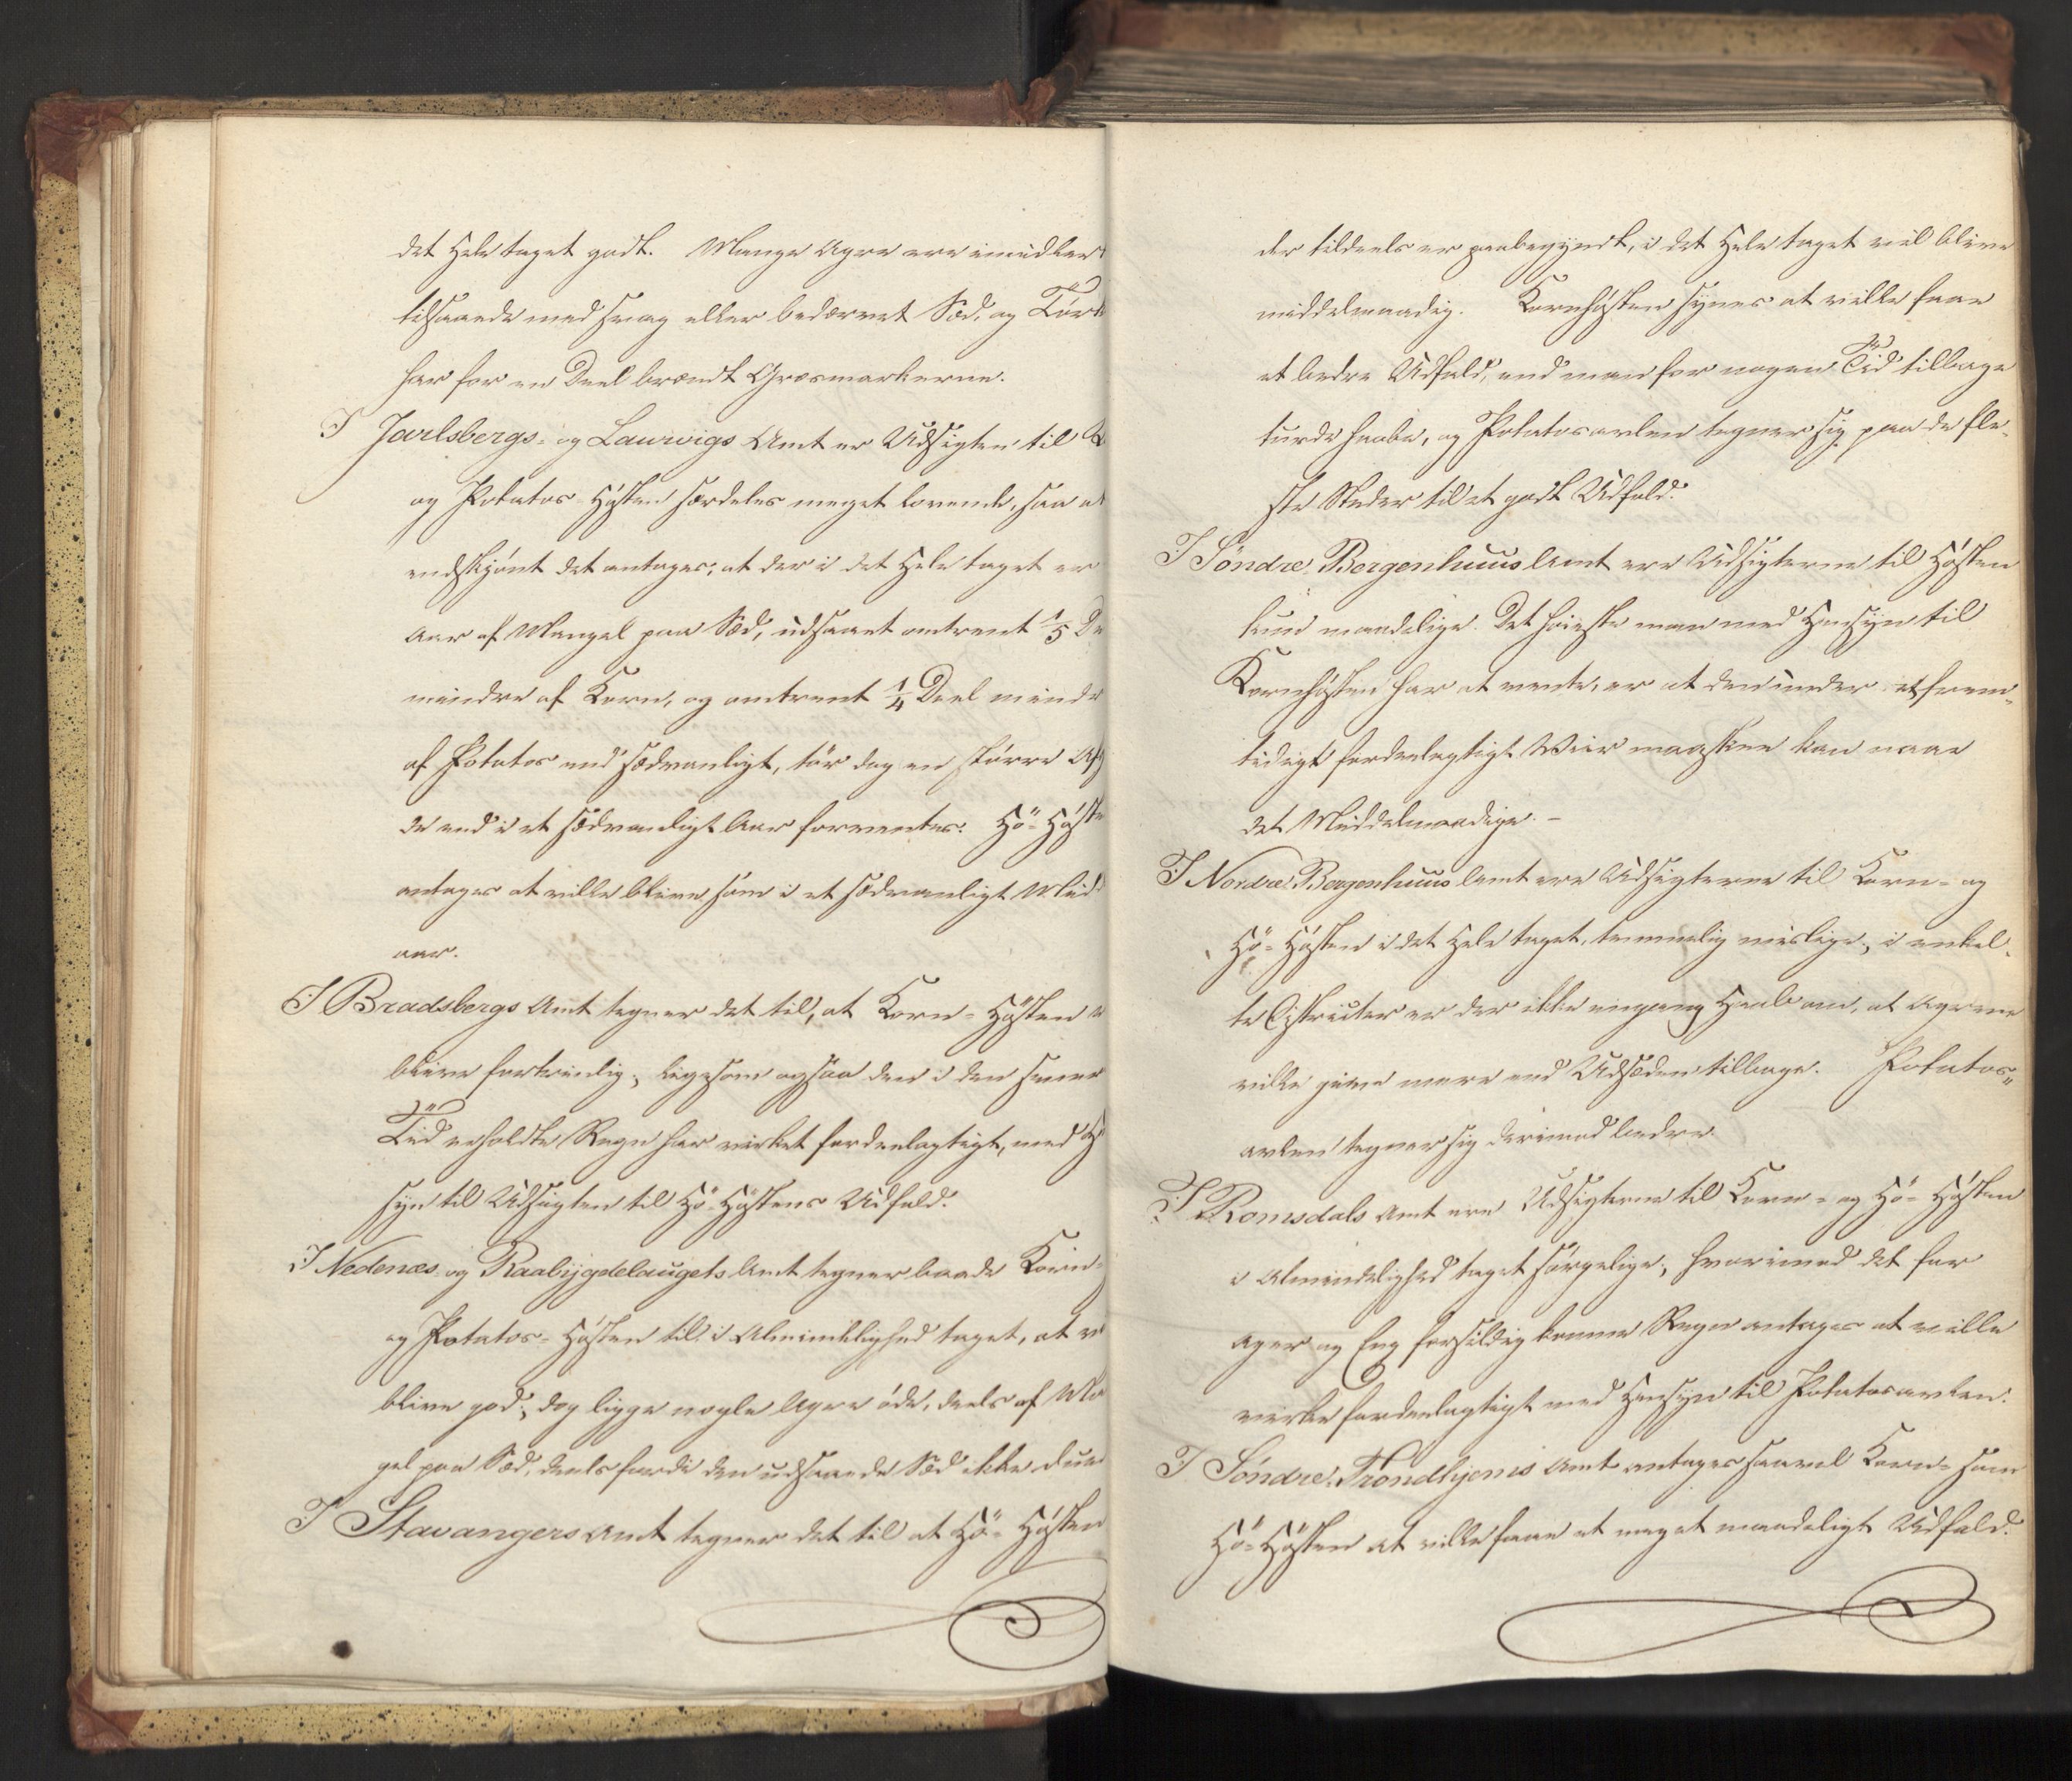 det Hele taget godt. Mange Agre ere imidler
tilsaaede med svag eller bedærvet Sæd, og Tørk
har for en Deel brændt Græsmarkerne.
I Jarlsbergs- og Laurvigs Amt er Udsigten til
og Potatos-Høsten særdeles meget lovende, saa at
endskjønt det antages, at der i det Hele taget er
Aar af Mangel paa Sæd, udsaaet omtrent 1/5 De
mindre af Korn, og omtrent 1/4 Deel mindr
af Potatos end sædvanligt, tør dog en større Af
de end i et sædvanligt Aar forventes. Hö-Høste
antages at ville blive som i et sædvanligt Mid
aar.
I Bradsbergs Amt tegner det til, at Korn-Høsten
blive fortrinlig, ligesom ogsaa den i den sener
Tid erholdte Regn har virket fordeelagtigt, med H
syn til Udsigten til Hö-Høstens Udfald.
I Nedenæs- og Raabygdelaugets Amt tegner baade Korn-
og Potatos-Høsten til i Almindelighed taget, at v
blive god; dog ligge nogle Agre øde, deels af Ma
gel paa Sæd, deels fordi den udsaaede Sæd ikke due
I Stavangers Amt tegner det til at Hö-Høsten
der tildeels er paabegyndt, i det Hele taget vil blive
middelmaadig. Kornhøsten synes at ville faae
et bedre Udfald, end man for nogen Tid tilbage
turde haabe, og Potatosavlen tegner sig paa de fle-
ste Steder til et godt Udfald.
I Söndre Bergenhuus Amt ere Udsigterne til Høsten
kun maadelige. Det høieste man med Hensyn til
Kornhøsten har at vente, er at den under et frem-
tidigt fordeelagtigt Veir maaskee kan naae
det Middelmaadige. -
I Nordre Bergenhuus Amt ere Udsigterne til Korn- og
Hö-Høsten i det Hele taget, temmelig mislige; i enkel-
te Districter er der ikke engang Haab om, at Agrene
ville give mere end Udsæden tilbage. Potatos-
avlen tegner sig derimod bedre.
I Romsdals Amt ere Udsigterne til Korn- og Hö-Høsten
i Almindelighed taget sørgelige, hvorimod det for
Ager og Eng forsildig komne Regn antages at ville
virke fordeelagtigt med Hensyn til Potatosavlen.
I Söndre Trondhjems Amt antages saavel Korn- som
Hö-Høsten at ville faae et meget maadeligt Udfald.